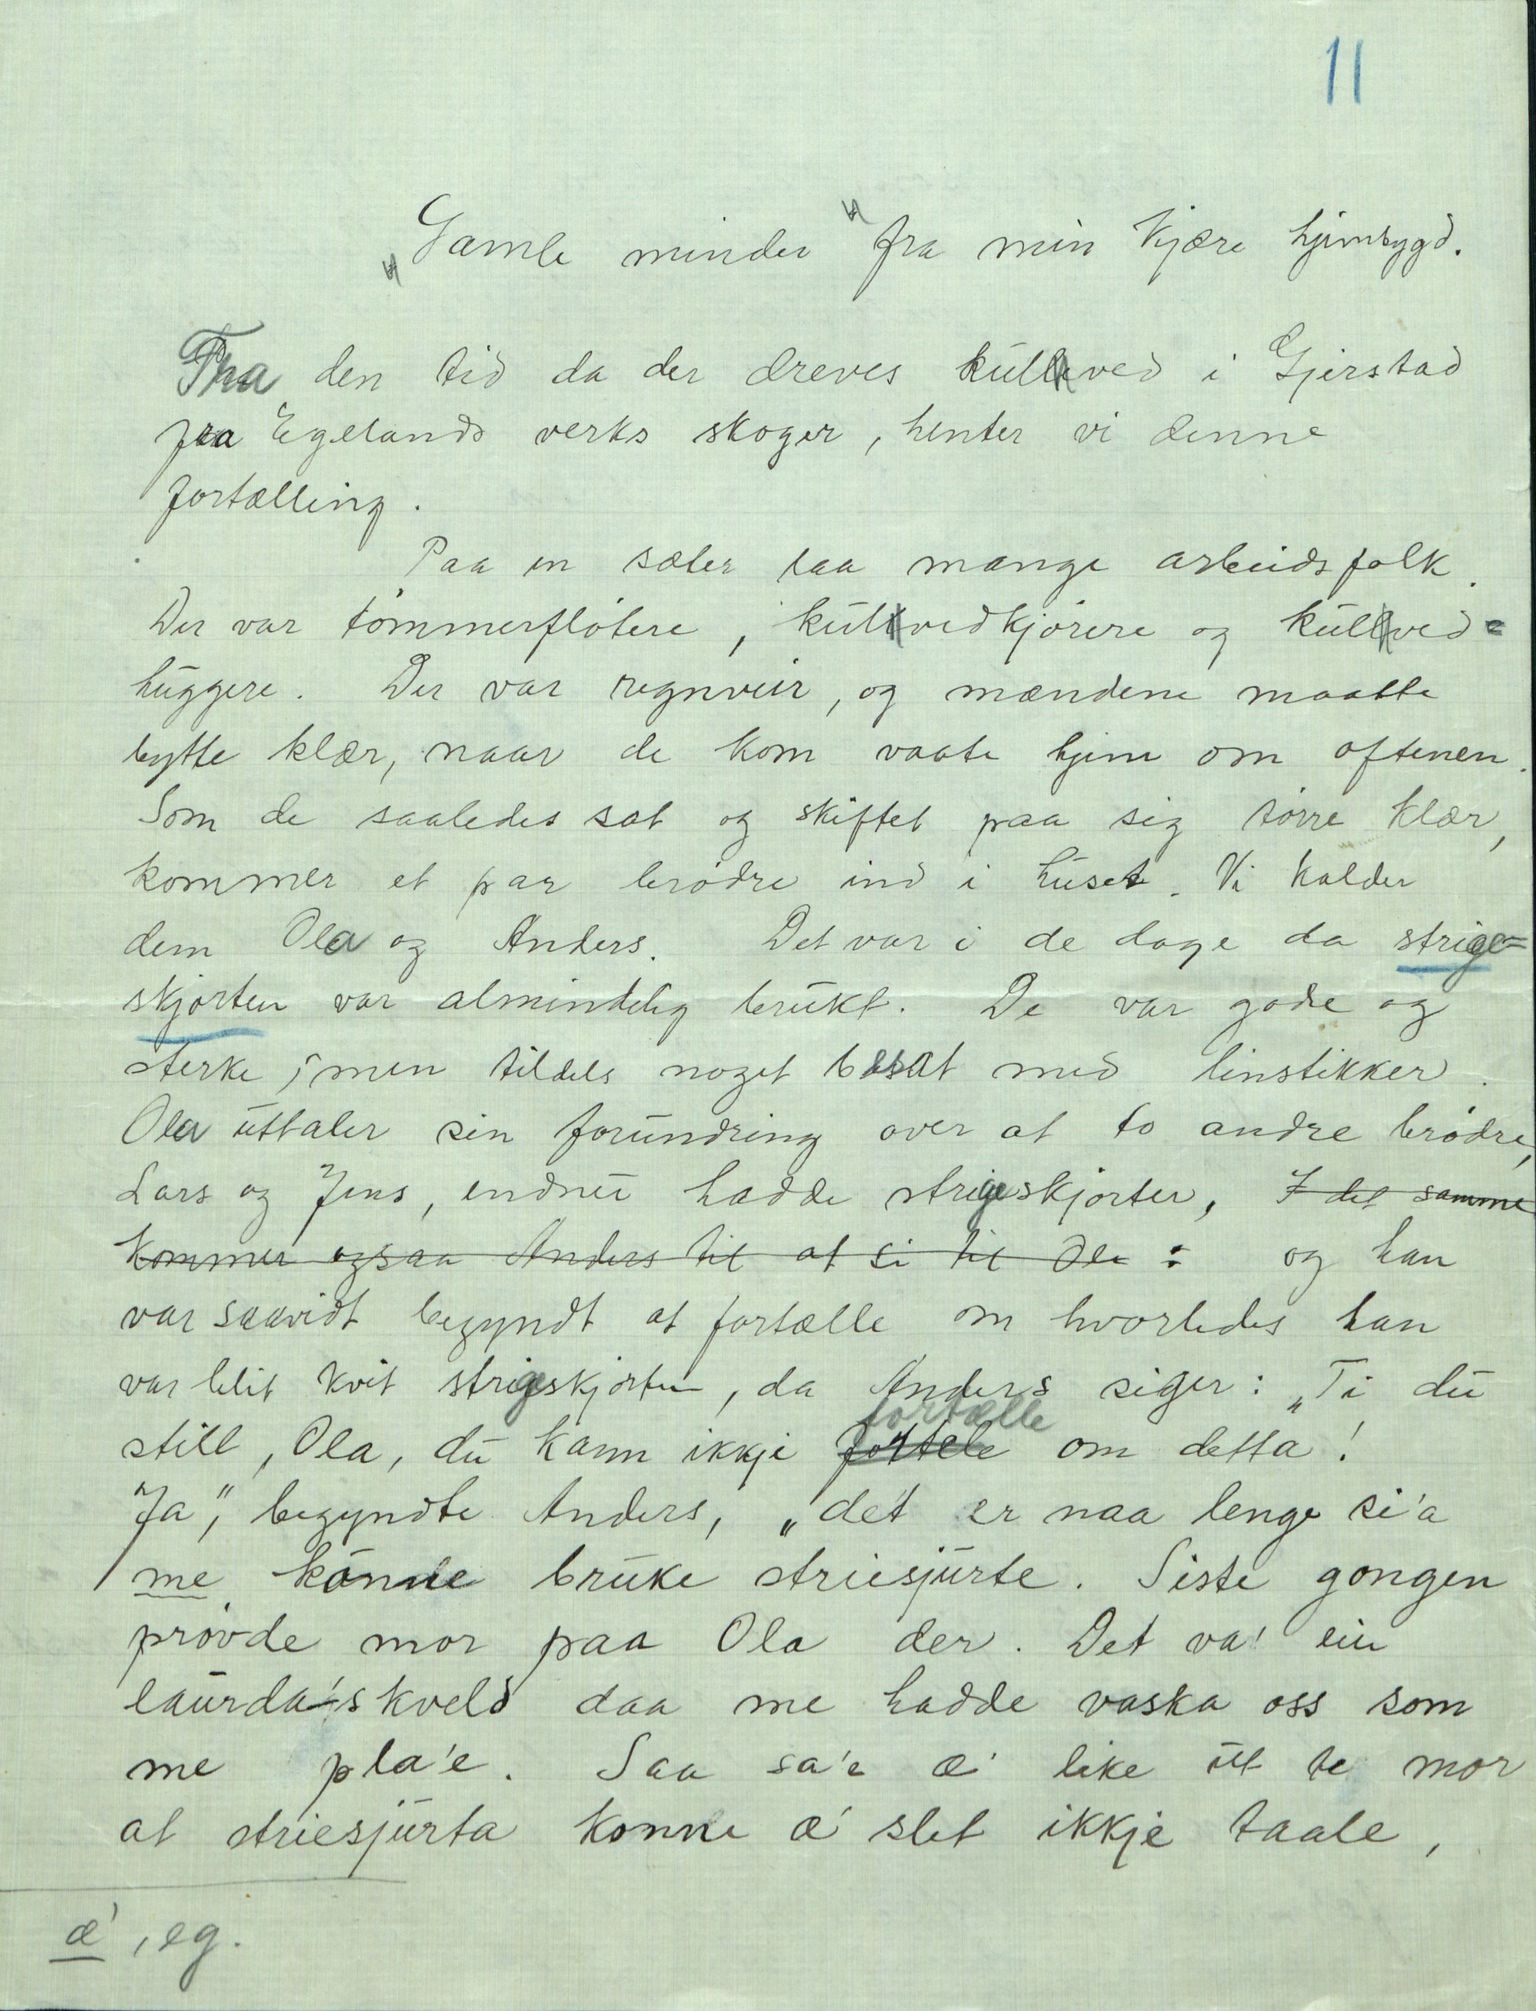 11
„Gamle minder" fra min kjære hjembygd.
Fra den tid da der dreves kulved i Gjerstad
fra Egelands verks skoger, henter vi denne
fortælling.
Paa en sæter laa mange arbeidsfolk.
Der var tømmerfløtere, kulvedkjørere og kulved=
huggere. Der var regnveir, og mændene maatte
bytte klær, naar de kom vaate hjem om aftenen.
Som de saaledes sat og skiftet paa sig tørre klær,
kommer et par brødre ind i huset. Vi kalder
dem Ola og Anders. Det var i de dage da strige=
skjorten var almindelig brukt. De var gode og
sterke, men tildels noget besat med linstikker.
Ola uttaler sin forundring over at to andre brødre,
Lars og Jens, endnu hadde strigeskjorter, I det samme
kommer ogsaa Anders til at si til Ola: og han
var saavidt begyndt at fortælle om hvorledes han
var blit kvit strigeskjorten, da Anders siger: „Ti du
still, Ola, du kann ikkje fortele fortælle om detta!
Ja", begyndte Anders, „de't er naa lenge si'a
me konne bruke striesjurte. Siste gongen
prøvde mor paa Ola der. Det va' ein
laurda'skveld daa me hadde vaska oss som
me pla'e. Saa sa'e æ' like ut te mor
at striesjurta konne æ' slet ikkje taale,
æ', eg.